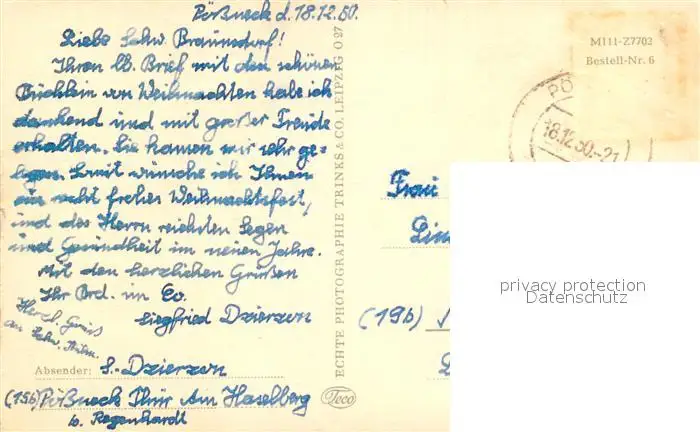 Pößneck d. 18.12.60.
Liebe Schw. Braunsdorf!
Ihren lb. Brief mit den schönen
Büchlein von Weihnachten habe ich
dankend und mit großer Freude
erhalten. Sie kamen mir sehr ge-
legen. Somit wünsche ich Ihnen
ein recht frohes Weihnachtsfest,
und des Herrn reichsten Segen
und Gesundheit im neuen Jahre.
Mit den herzlichen Grüßen
Ihr Brd. im Ev.
Siegfried Dzierzon
Herzl. Gruß
an Schw.
Absender: S. Dzierzon
(15b) Pößneck Thür Am Haselberg
b. Regenhardt
ECHTE PHOTOGRAPHIE TRINKS & CO. LEIPZIG O 27
Teco
M111-Z7702
Bestell-Nr. 6
PÖ
18.12.60.-21
Frau
(19b)
privacy protection
Datenschutz